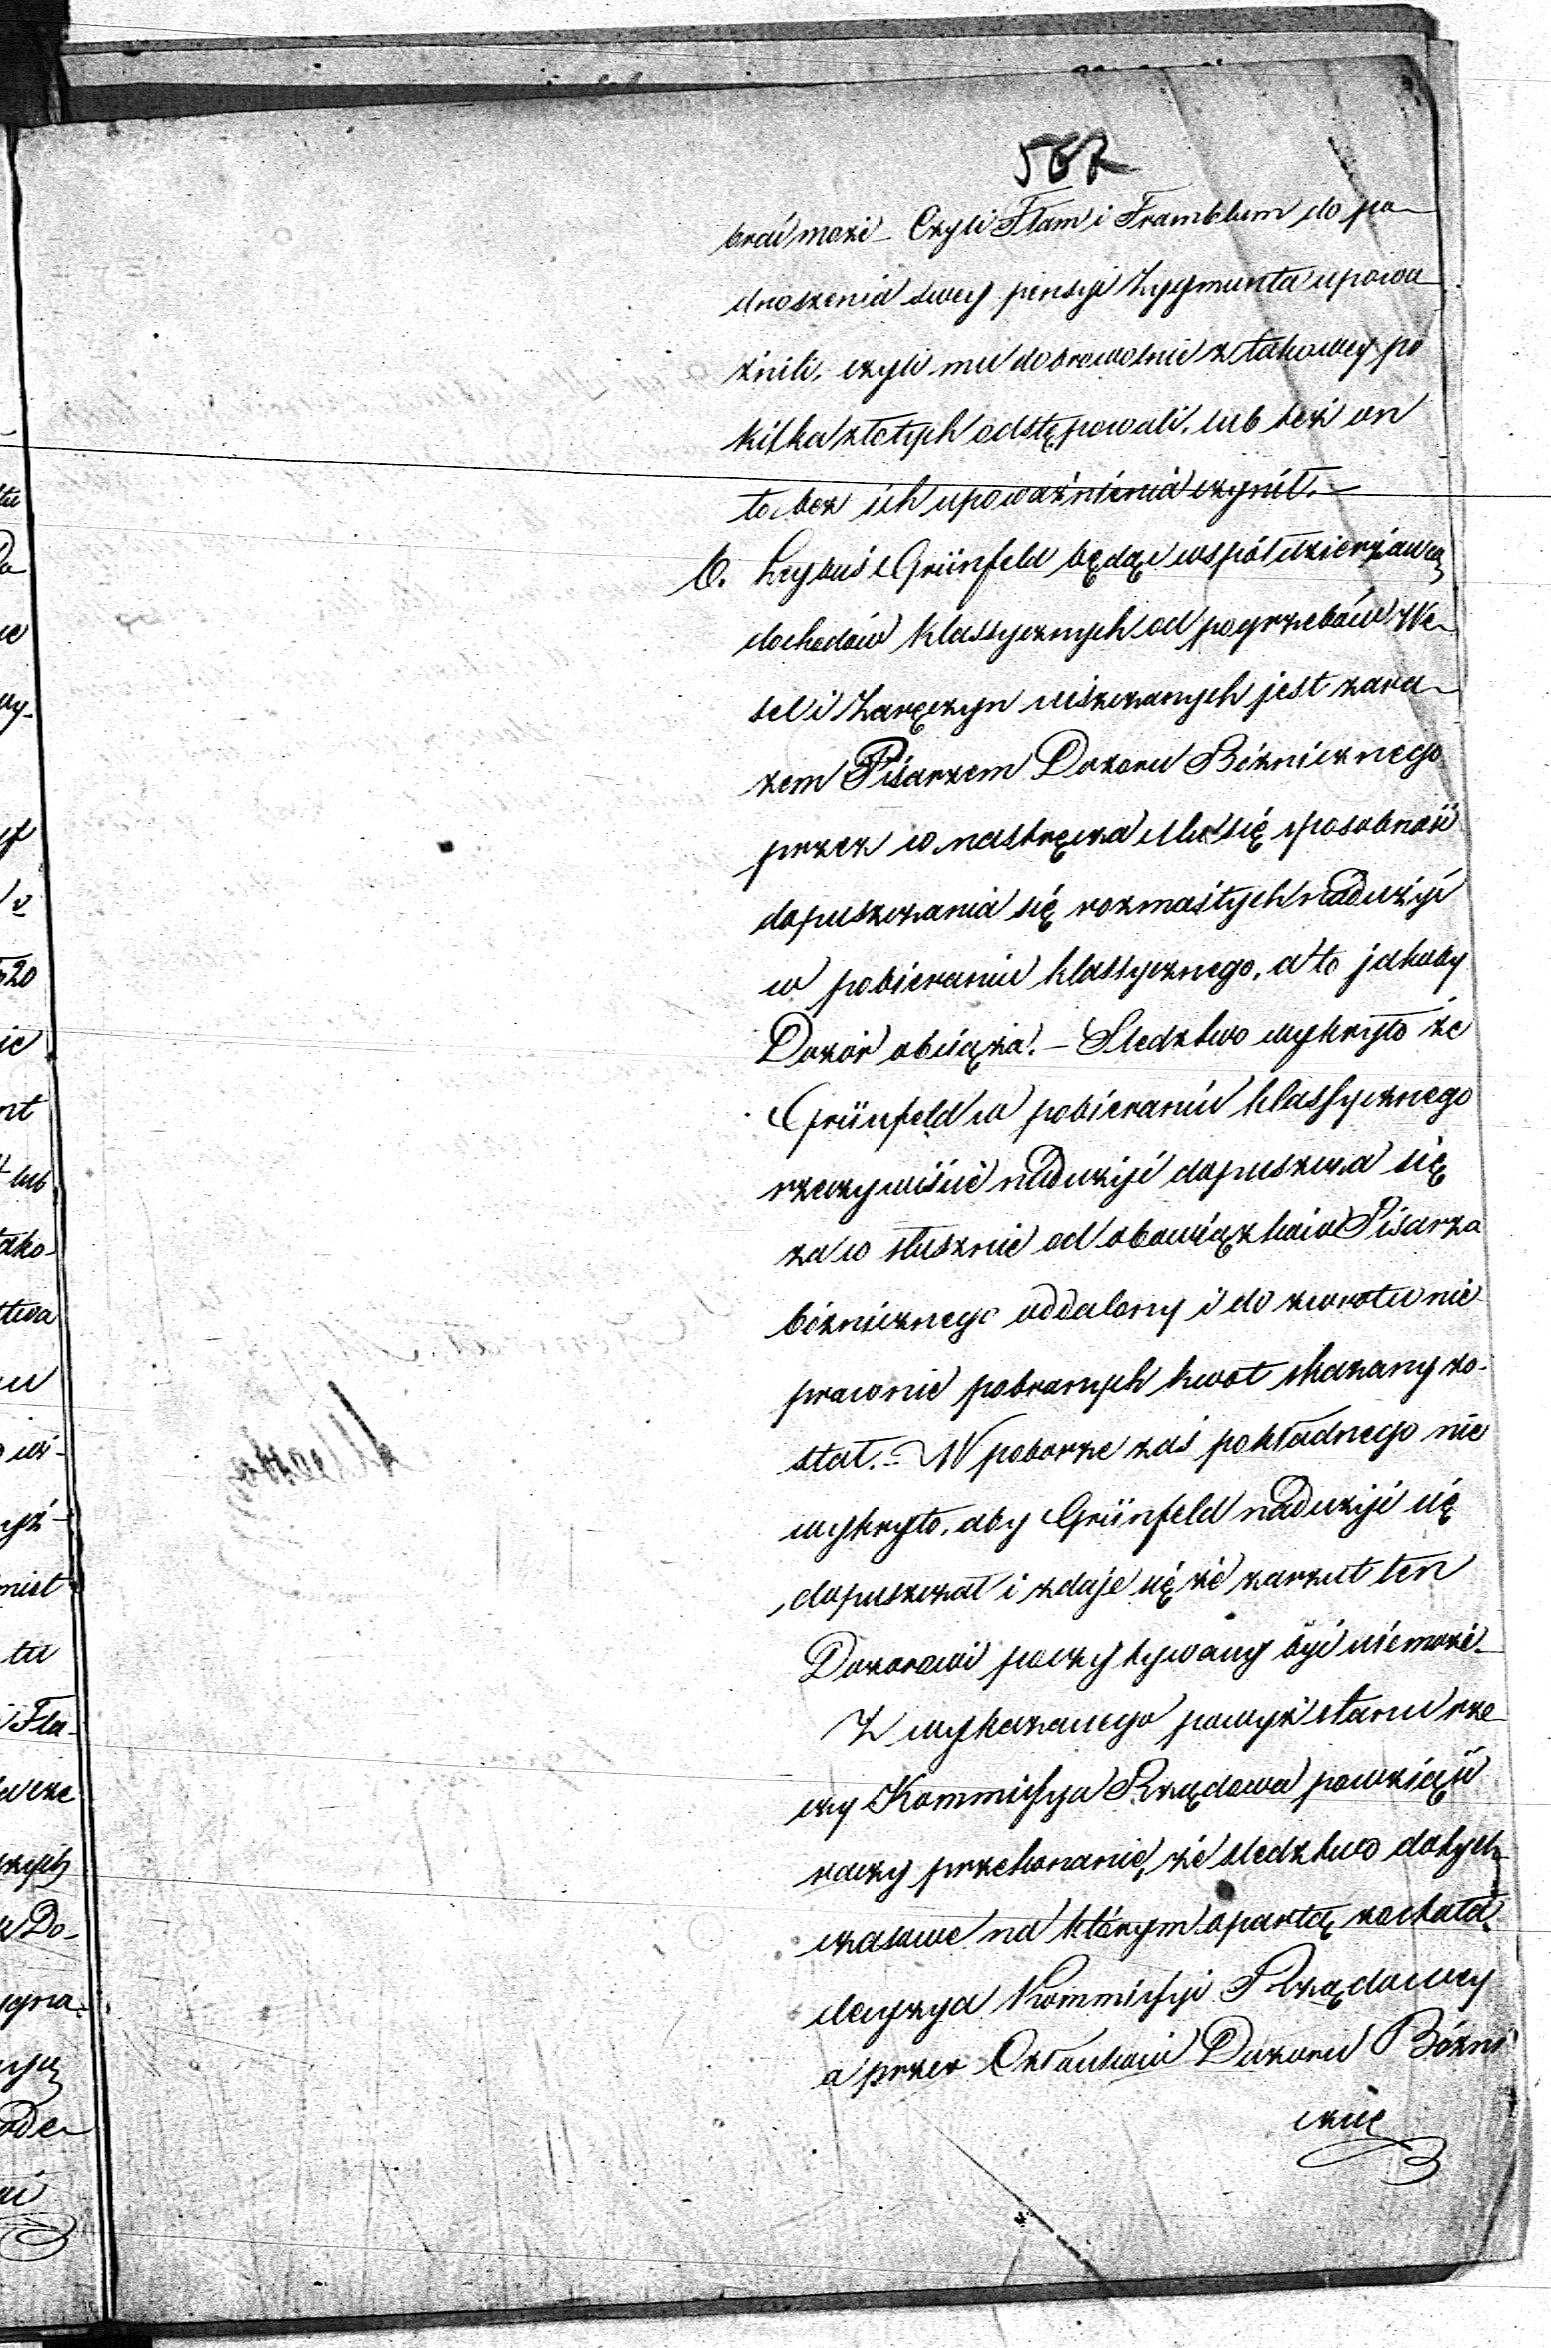 567
brać może – Czyli Flam i Framblum do po-
dnoszenia swey pensyi Zygmunta upowa
żnili, czyli mu dobrowolnie z takowey po
kilka złotych odstępowali, lub też on
to bez ich upoważnienia czynił. –
6. Leybuś Grünfeld będąc współ dzierżawcą
dochodów klassycznych od pogrzebów We-
sel i Zaręczyn uiszczanych jest zara-
zem Pisarzem Dozoru Bożnicznego
przez co nastręcza Mu się sposobność
dopuszczania się rozmaitych nadużyć
w pobieraniu klassycznego, a to jakoby
Dozór obciąża. – Sledztwo wykryło że
Grünfeld w pobieraniu klassycznego
rzeczywiście nadużyć dopuszcza się
za co słusznie od obowiązków Pisarza
bożnicznego oddalony i do zwrotu nie
prawnie pobranych kwot skazany zo-
stał. – W poborze zaś pokładnego nie
wykryto, aby Grünfeld nadużyć się
dopuszczał i zdaje się że zarzut ten
Dozorowi poczytywany być niemoże –
Z wykazanego powyż stanu rze-
czy Kommissya Rządowa powziąść
raczy przekonanie, że sledztwo dotych
czasowe na którym opartą została
decyzya Kommissyi Rządowey
a przez Członków Dozoru Bóżni
cznie
tu
520
nt
lub
tako-
ctwa
Fla-
Do-